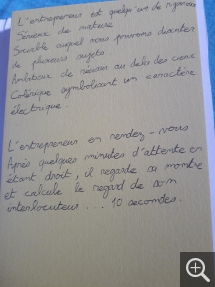 L'entrepreneur est quelqu'un de rigoureux
Sérieux de nature
Sociable auquel nous pouvons discuter
de plusieurs sujets
Ambitieux de réussir au delà des
Colérique symbolisant un caractère
électrique.
L'entrepreneur en rendez-vous
Après quelques minutes d'attente en
étant droit, il regarde sa montre
et calcule le regard de son
interlocuteur... 10 secondes.